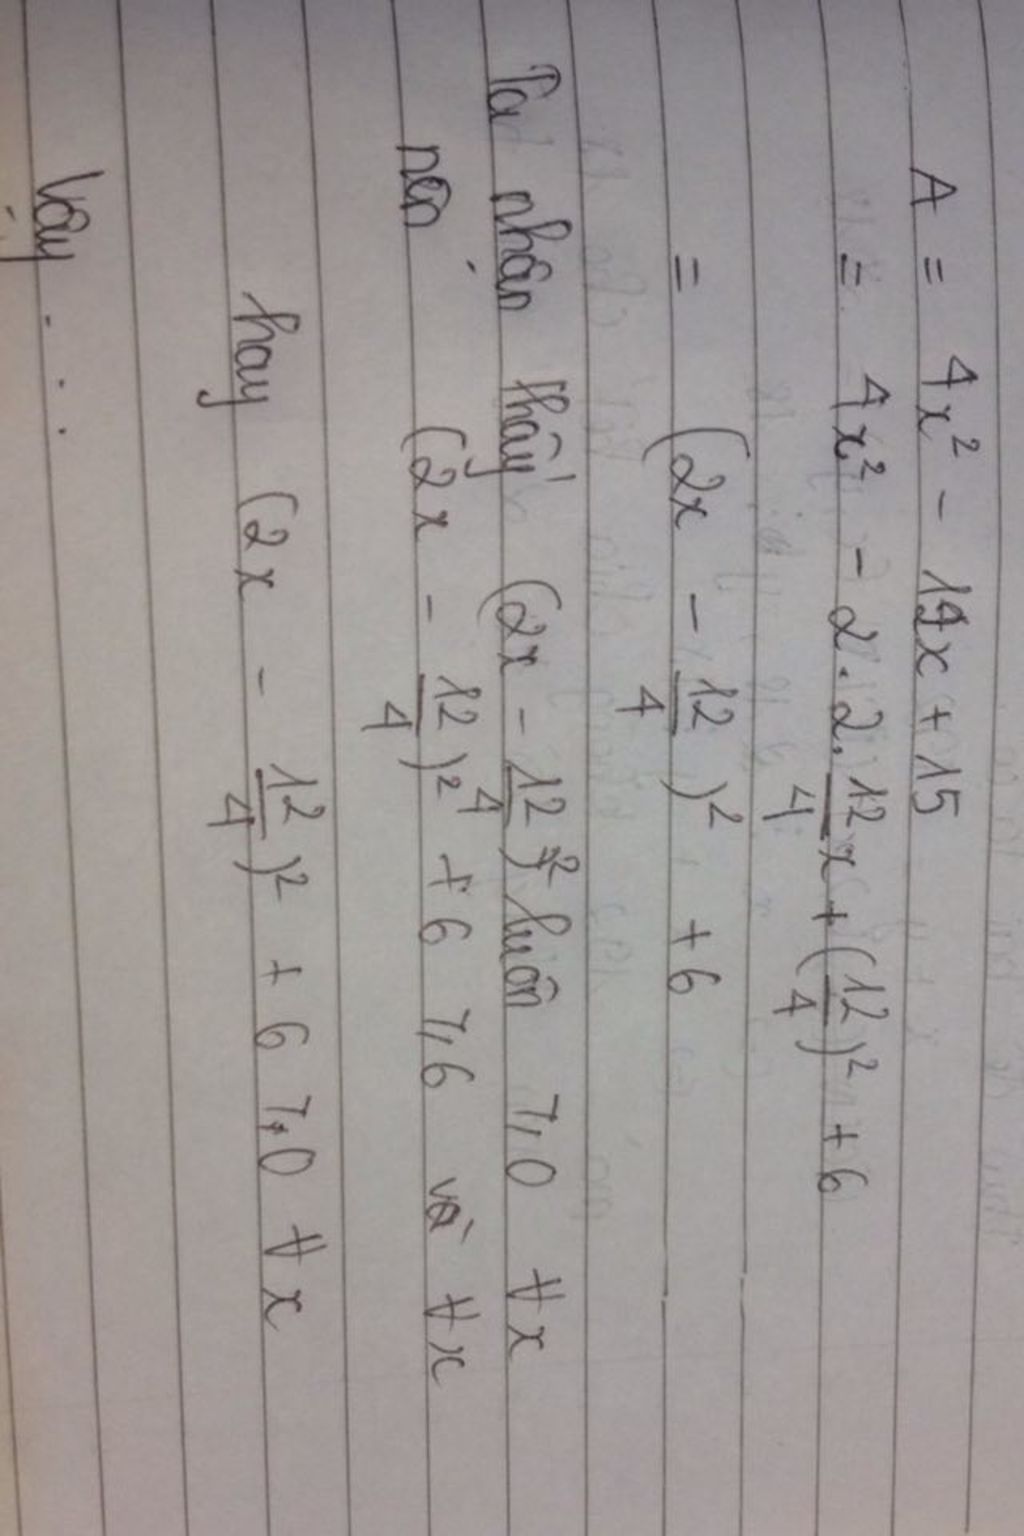 A = 4x² - 12x + 15
= 4x² - 2.2.12/4x + (12/4)² + 6
= (2x - 12/4)² + 6
Ta nhận thấy (2x - 12/4)² luôn ⩾ 0 ∀x
nên (2x - 12/4)² + 6 ⩾ 6 và ∀x
hay (2x - 12/4)² + 6 ⩾ 0 ∀x
Vậy . . .